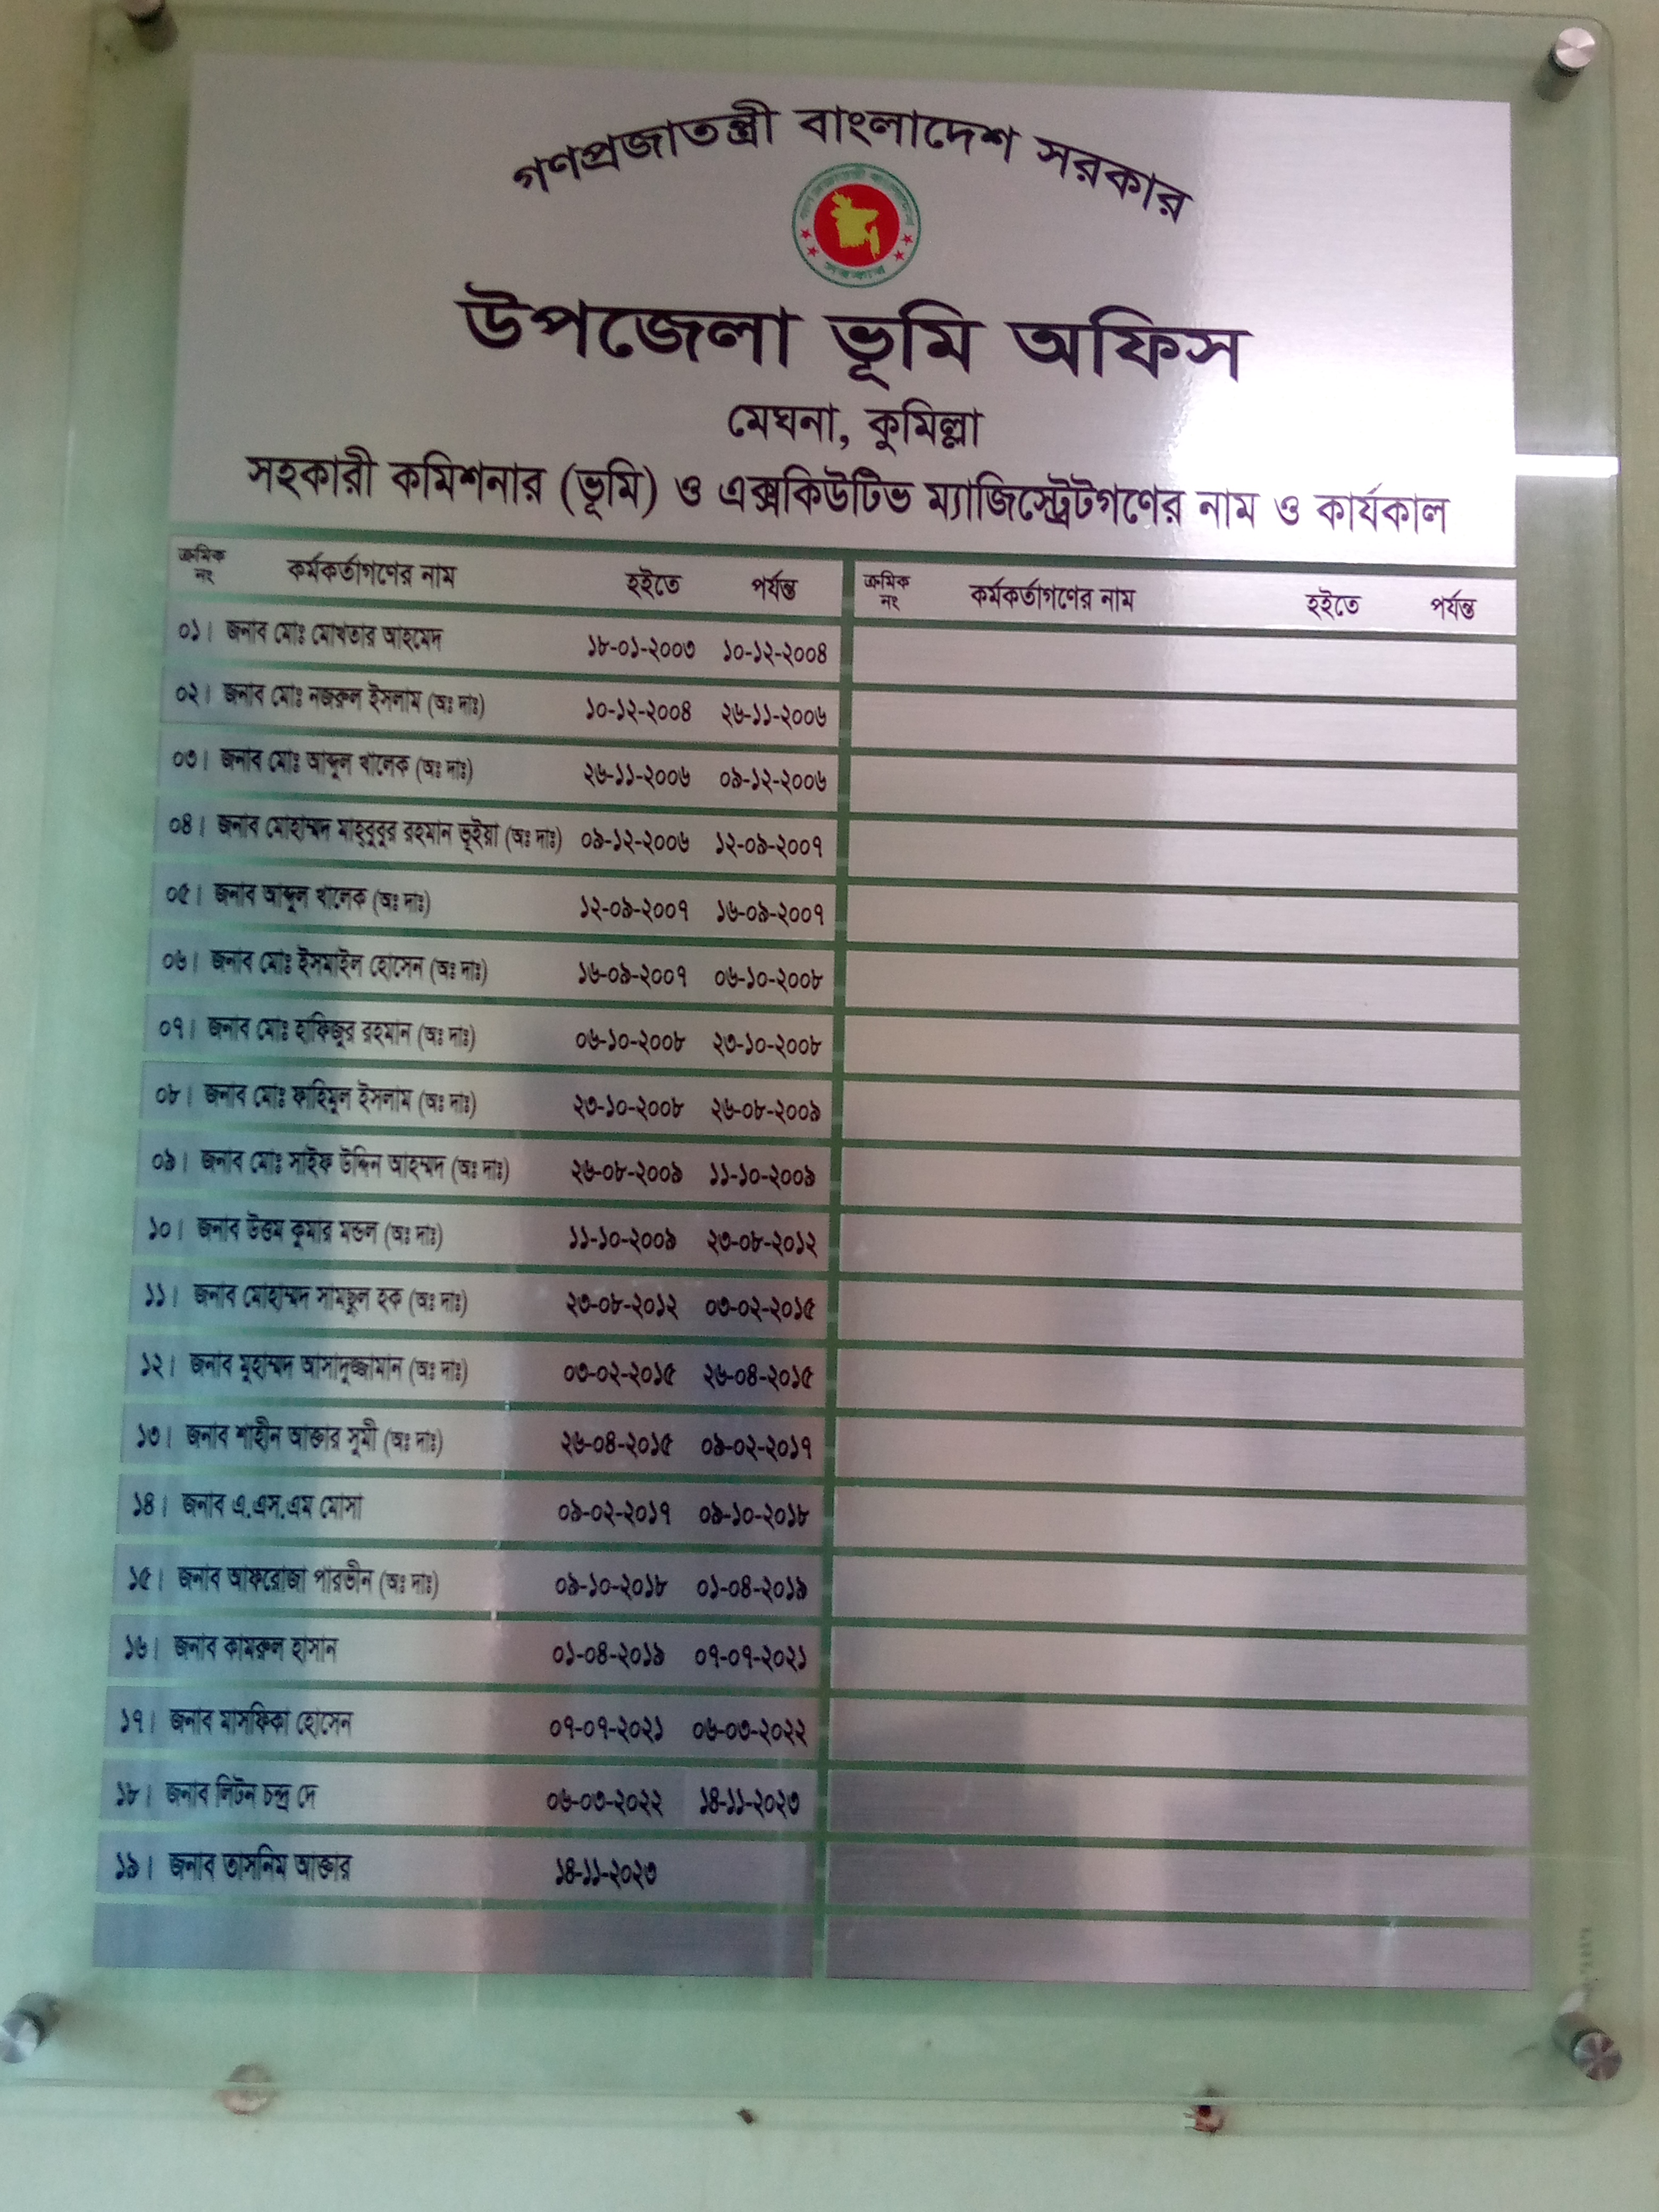 গণপ্রজাতন্ত্রী বাংলাদেশ সরকার
সরকার
উপজেলা ভূমি অফিস
মেঘনা, কুমিল্লা
সহকারী কমিশনার (ভূমি) ও এক্সকিউটিভ ম্যাজিস্ট্রেটগণের নাম ও কার্যকাল
ক্রমিক নং কর্মকর্তাগণের নাম হইতে পর্যন্ত ক্রমিক নং কর্মকর্তাগণের নাম হইতে পর্যন্ত
০১। জনাব মোঃ মোখতার আহমেদ ১৮-০১-২০০৩ ১০-১২-২০০৪
০২। জনাব মোঃ নজরুল ইসলাম (অঃ দাঃ) ১০-১২-২০০৪ ২৬-১১-২০০৬
০৩। জনাব মোঃ আব্দুল খালেক (অঃ দাঃ) ২৬-১১-২০০৬ ০৯-১২-২০০৬
০৪। জনাব মোহাম্মদ মাহ্‌বুবুর রহমান ভূইয়া (অঃ দাঃ) ০৯-১২-২০০৬ ১২-০৯-২০০৭
০৫। জনাব আব্দুল খালেক (অঃ দাঃ) ১২-০৯-২০০৭ ১৬-০৯-২০০৭
০৬। জনাব মোঃ ইসমাইল হোসেন (অঃ দাঃ) ১৬-০৯-২০০৭ ০৬-১০-২০০৮
০৭। জনাব মোঃ হাফিজুর রহমান (অঃ দাঃ) ০৬-১০-২০০৮ ২৩-১০-২০০৮
০৮। জনাব মোঃ ফাহিমুল ইসলাম (অঃ দাঃ) ২৩-১০-২০০৮ ২৬-০৮-২০০৯
০৯। জনাব মোঃ সাইফ উদ্দিন আহম্মদ (অঃ দাঃ) ২৬-০৮-২০০৯ ১১-১০-২০০৯
১০। জনাব উত্তম কুমার মন্ডল (অঃ দাঃ) ১১-১০-২০০৯ ২৩-০৮-২০১২
১১। জনাব মোহাম্মদ সামছুল হক (অঃ দাঃ) ২৩-০৮-২০১২ ০৩-০২-২০১৫
১২। জনাব মুহাম্মদ আসাদুজ্জামান (অঃ দাঃ) ০৩-০২-২০১৫ ২৬-০৪-২০১৫
১৩। জনাব শাহীন আক্তার সুমী (অঃ দাঃ) ২৬-০৪-২০১৫ ০৯-০২-২০১৭
১৪। জনাব এ.এস.এম মোসা ০৯-০২-২০১৭ ০৯-১০-২০১৮
১৫। জনাব আফরোজা পারভীন (অঃ দাঃ) ০৯-১০-২০১৮ ০১-০৪-২০১৯
১৬। জনাব কামরুল হাসান ০১-০৪-২০১৯ ০৭-০৭-২০২১
১৭। জনাব মাসফিকা হোসেন ০৭-০৭-২০২১ ০৬-০৩-২০২২
১৮। জনাব লিটন চন্দ্র দে ০৬-০৩-২০২২ ১৪-১১-২০২৩
১৯। জনাব তাসনিম আক্তার ১৪-১১-২০২৩